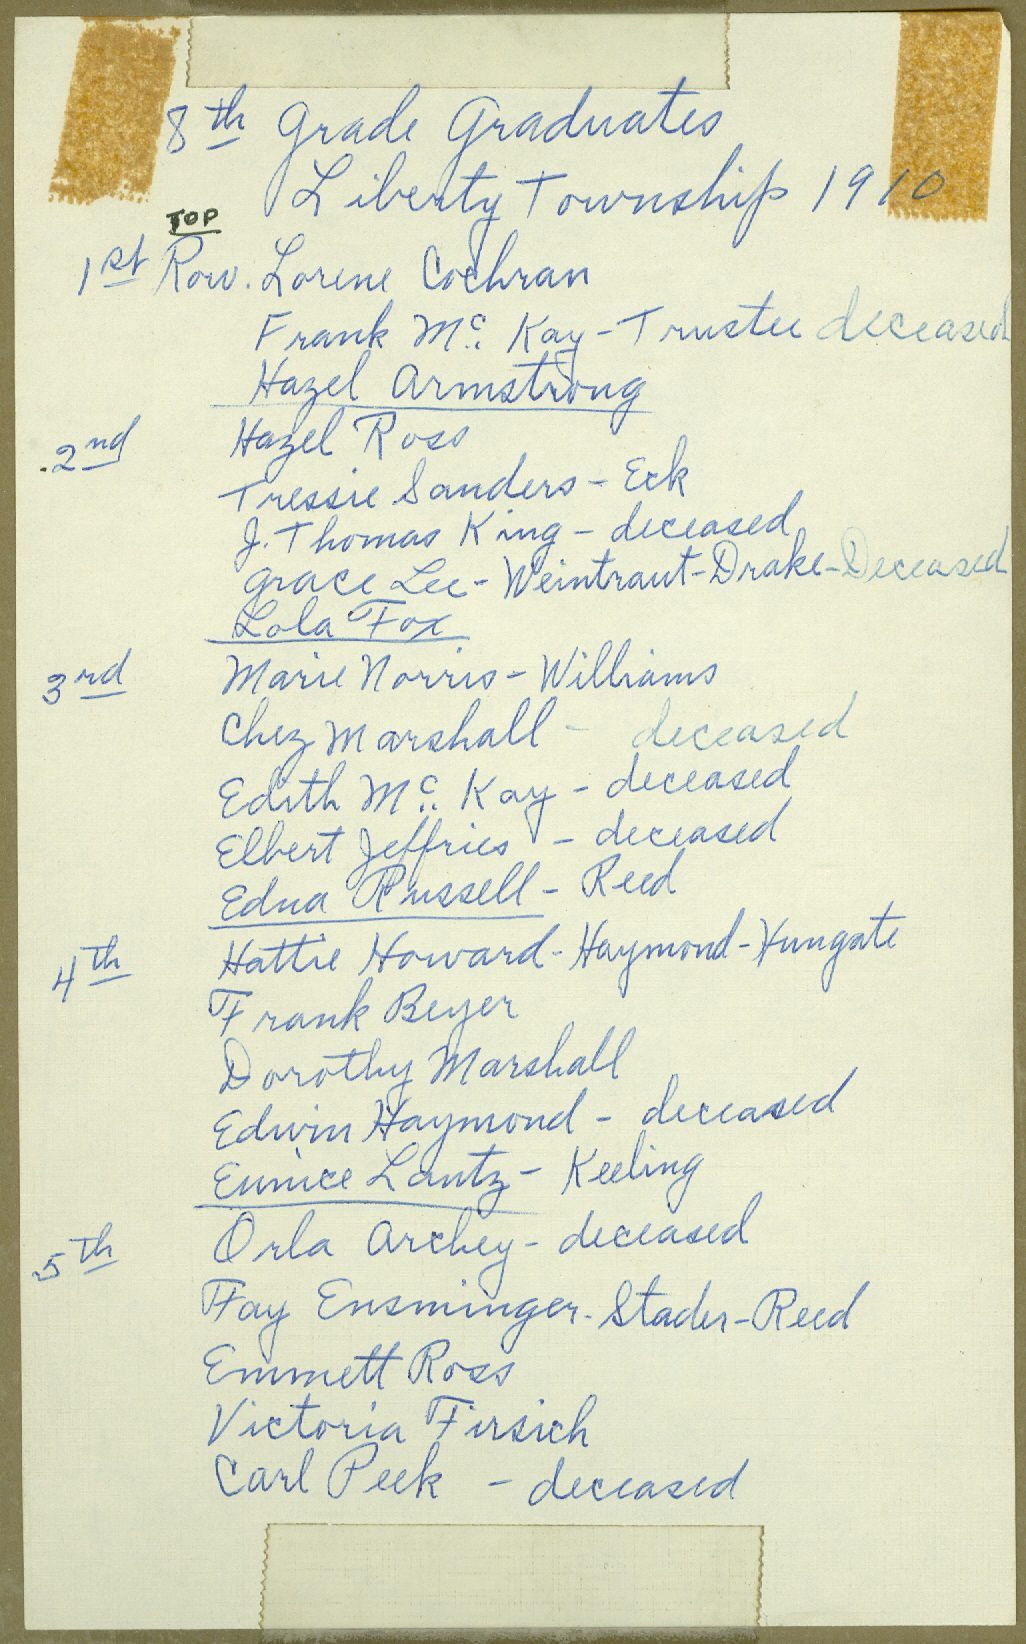 8th Grade Graduates
Liberty Township 1910
TOP
1st Row. Lorene Cochran
Frank Mc. Kay - Trustee deceased
Hazel Armstrong
2nd Hazel Ross
Tressie Sanders - Eck
J. Thomas King - deceased
Grace Lee - Weintraut - Drake - Deceased
Lola Fox
3rd Marie Norris - Williams
Chez Marshall - deceased
Edith Mc. Kay - deceased
Elbert Jeffries - deceased
Edna Russell - Reed
4th Hattie Howard - Haymond - Hungate
Frank Beyer
Dorothy Marshall
Edwin Haymond - deceased
Eunice Lantz - Keeling
5th Orla Archey - deceased
Fay Ensminger - Stader - Reed
Emmett Ross
Victoria Firsich
Carl Peek - deceased